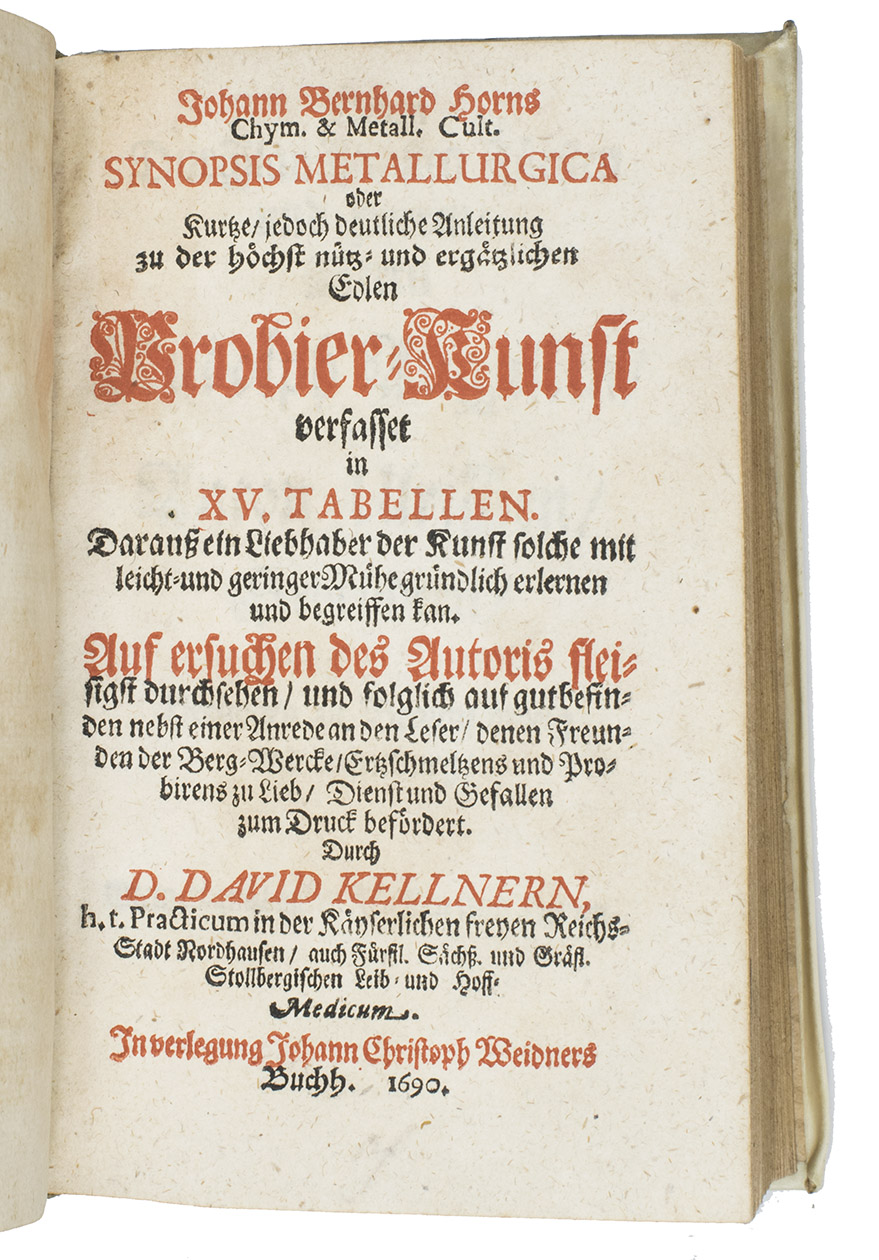 Johann Bernhard Horns
Chym. & Metall. Cult.
SYNOPSIS METALLURGICA
oder
Kurtze/ jedoch deutliche Anleitung
zu der höchst nütz- und ergätzlichen
Edlen
Probier-Kunst
verfasset
in
XV. TABELLEN.
Darauß ein Liebhaber der Kunst solche mit
leicht- und geringer Mühe gründlich erlernen
und begreiffen kan.
Auf ersuchen des Autoris flei-
sigst durchsehen/ und folglich auf gutbefin-
den nebst einer Anrede an den Leser/ denen Freun-
den der Berg-Wercke/ Ertzschmeltzens und Pro-
birens zu Lieb/ Dienst und Gefallen
zum Druck befördert.
Durch
D. DAVID KELLNERN,
h. t. Practicum in der Käyserlichen freyen Reichs-
Stadt Nordhausen/ auch Fürstl. Sächß. und Gräfl.
Stollbergischen Leib- und Hoff-
Medicum.
In verlegung Johann Christoph Weidners
Buchh. 1690.